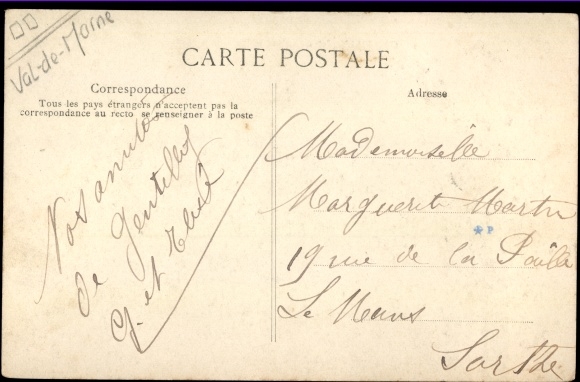 Val-de-Marne
CARTE POSTALE
Correspondance
Tous les pays étrangers n'acceptent pas la
correspondance au recto se renseigner à la poste
Nos amitiés
de Gentilly
G. et
Adresse
Mademoiselle
Marguerit Martin
*P
19 rue de la
Le Mans
Sarthe